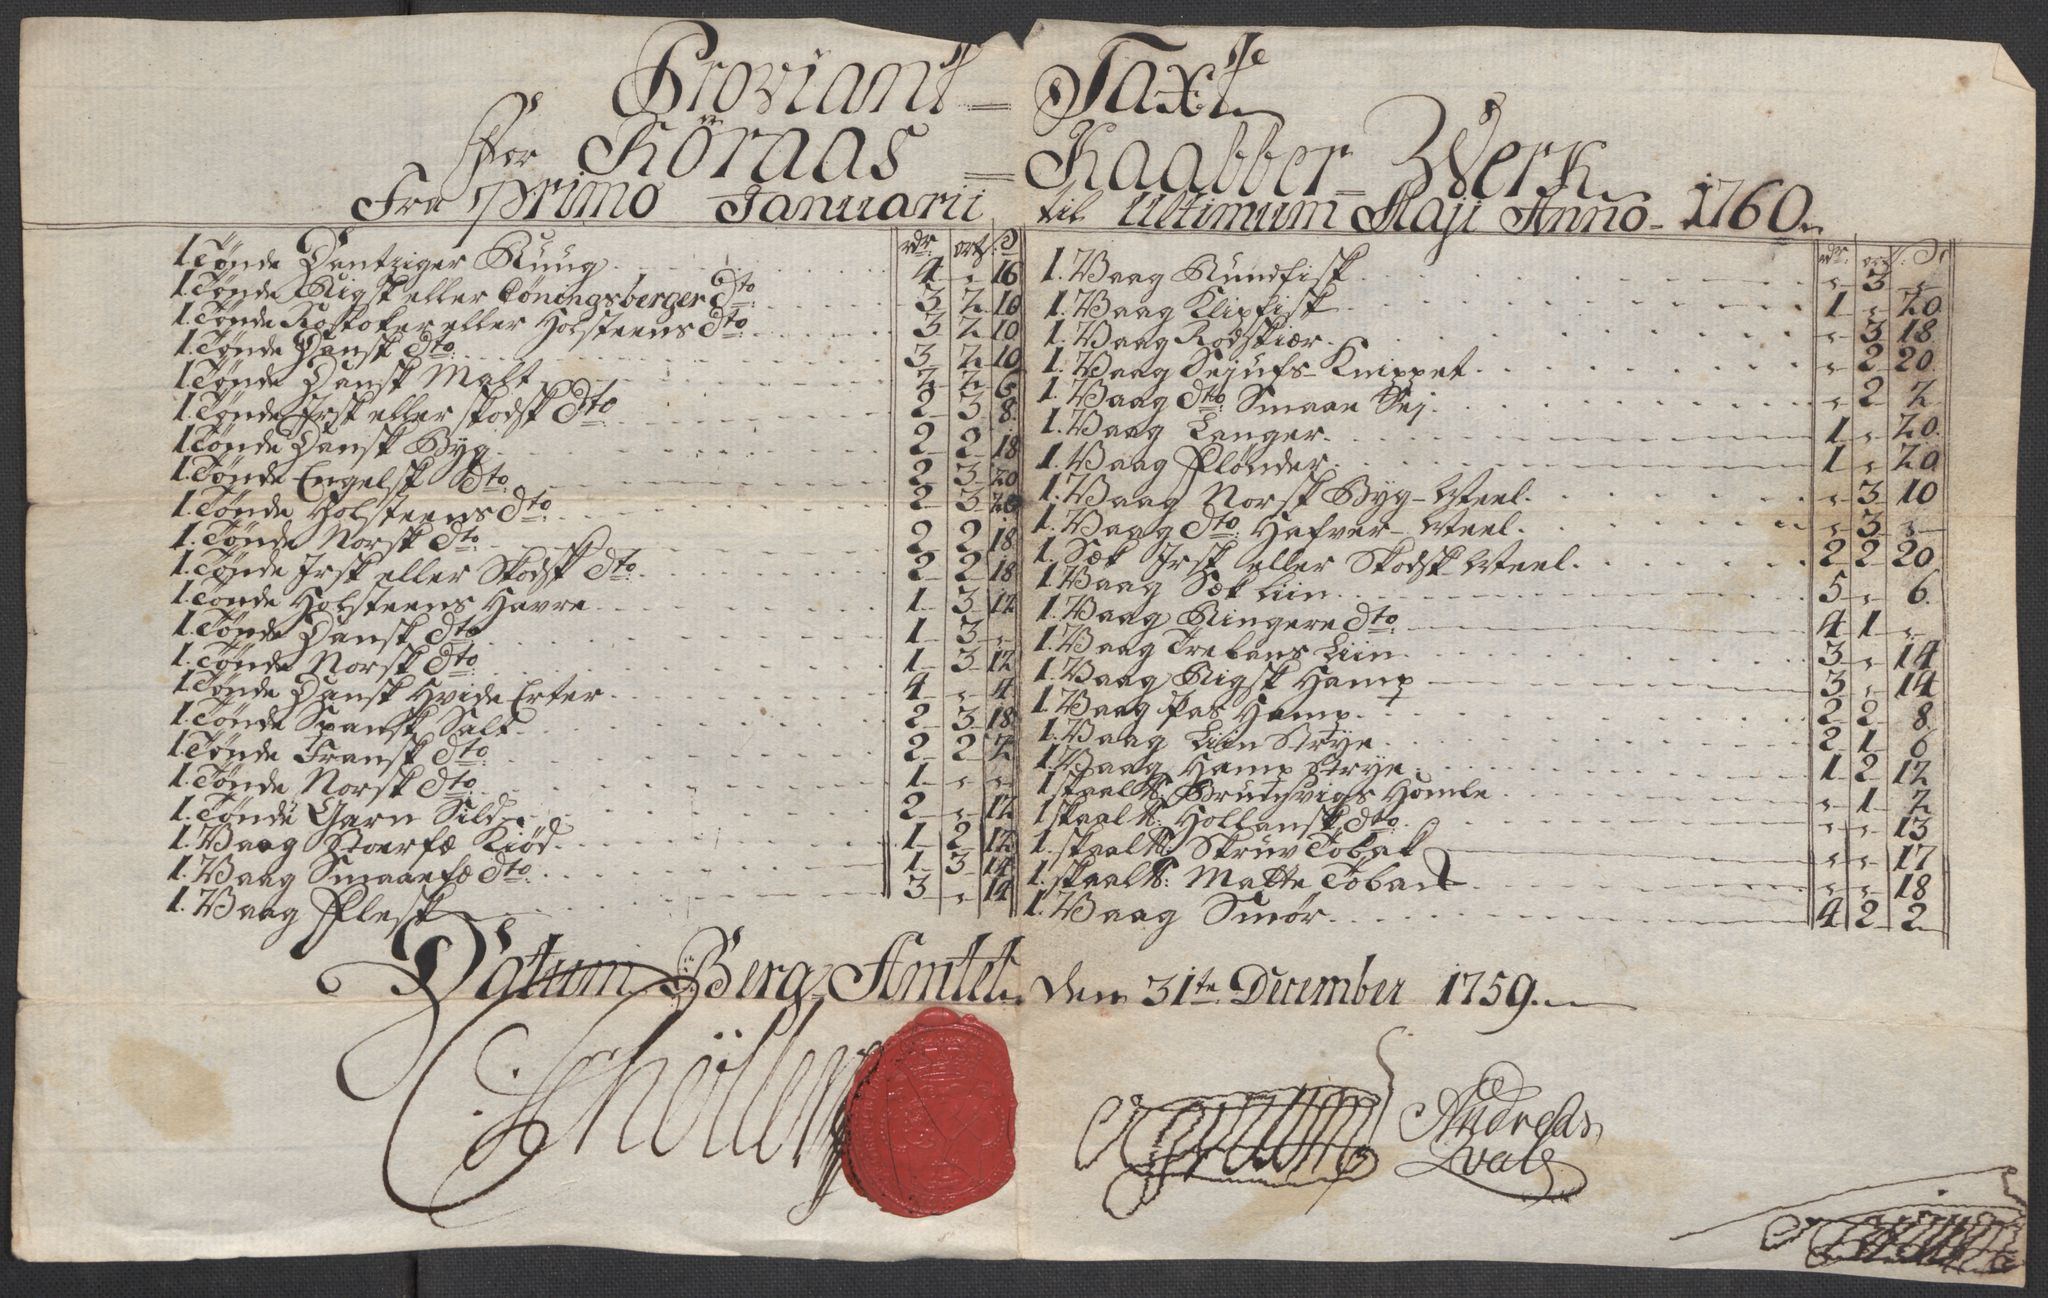 Proviant = Taxt
for Röraas = Kaabber = Werk
Fra Primo Januarii til Ultimum Maji Anno 1760
rdr. ort. s.
1. Tønde Dantziger Ruug 4 - 16
1. Tønde Rigsk eller Cöningsberger dto 3 2 10
1. Tønde Rostoker eller Holsteens dto 3 2 10
1. Tønde Dansk dto 3 2 10
1. Tønde Dansk Malt 2 2 6
1. Tønde Irsk eller skodsk dto 2 3 8
1. Tønde Dansk Byg 2 2 18
1. Tønde Engelsk dto 2 3 20
1. Tønde Holsteens dto 2 3 20
1. Tønde Norsk dto 2 2 18
1. Tønde Irsk eller Skodsk dto 2 2 18
1. Tønde Holsteens Havre 1 3 12
1. Tønde Dansk dto 1 3 -
1. Tønde Norsk dto 1 3 12
1. Tønde Dansk Hvide Erter 4 - 4
1. Tønde Spansk Salt 2 3 18
1. Tønde Fransk dto 2 2 2
1. Tønde Norsk dto 1 - -
1. Tønde Garn Sild 2 - 12
1. Waag Stoerfæ Kiød 1 2 12
1. Waag Smaaefæ dto 1 3 14
1. Waag Flesk 3 - 14
rdr. ort. s.
1. Waag Rundfisk - 3 -
1. Waag Klipfisk 1 - 20
1. Waag Rodskiær - 3 18
1. Waag Sejufs-Knippet - 2 20
1. Waag dto Smaae Sej - 2 2
1. Waag Langer 1 - 20
1. Waag Flønder 1 - 20
1. Waag Norsk Byg-Meel - 3 10
1. Waag dto Hafver-Meel - 3 -
1. Sæk Irsk eller Skodsk-Meel 2 2 20
1. Waag Sæk Liin 5 - 6
1. Waag Ringere dto 4 1 -
1. Waag Trebans Liin 3 - 14
1. Waag Rigsk Hamp 3 - 14
1. Waag Pas Hamp 2 2 8
1. Waag Liin Strye 2 1 6
1. Waag Hamp Strye 1 2 12
1 skaal ℔ Brunsvigs Homle - 1 2
1 skaal ℔ Hollansk dto - - 13
1. skaal ℔ Skruv Tobak - - 17
1. skaal ℔: Matte Tobak - - 18
1. Waag Smør 4 2 2
Datum Berg-Amtet den 31te December 1759
Schøller
Andreas